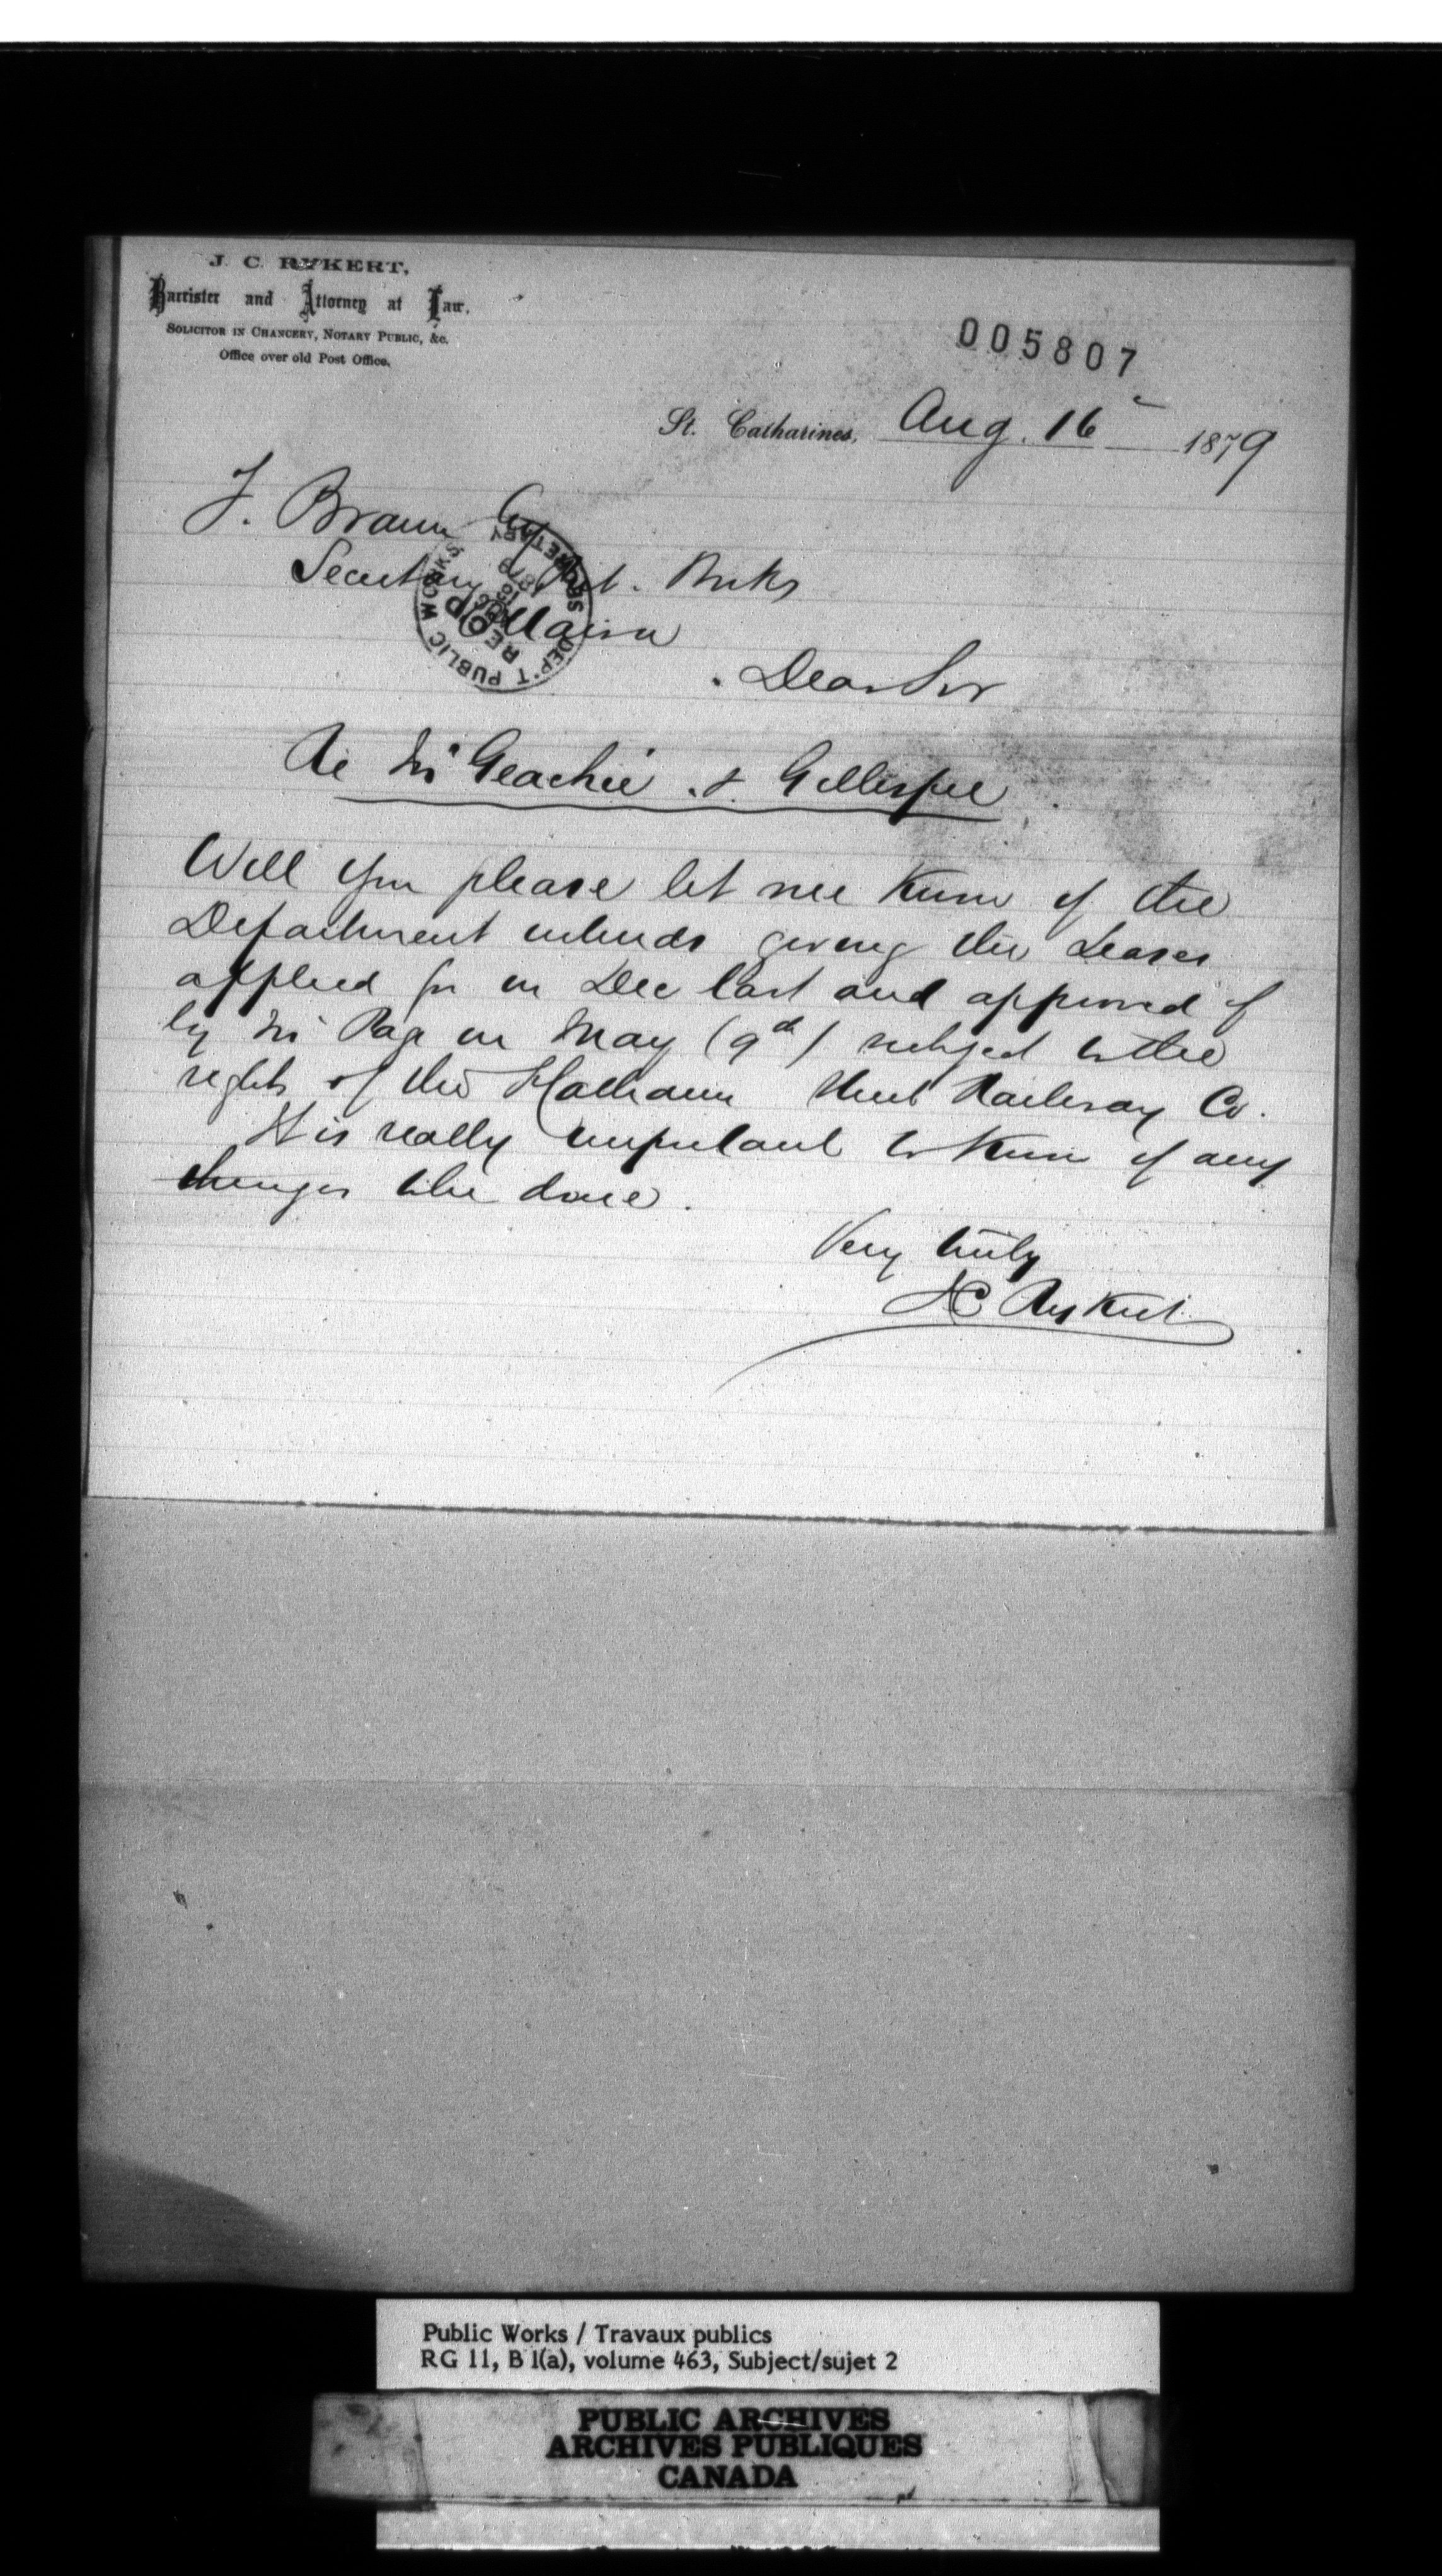 J. C. RYKERT,
Barrister and Attorney at Law.
SOLICITOR IN CHANCERY, NOTARY PUBLIC, &c.
Office over old Post Office.
005807
St. Catharines, Aug. 16 1879
F. Braun Esq
Secretary Pub. Wrks
Ottawa
DEP'T PUBLIC WORKS SECRETARY
REC'D
1879
Dear Sir
Re McGeachie & Gillespie
Will you please let me know if the
Department intends giving the Leases
applied for in Dec last and approved of
by Mr Page in May (9th) subject to the
rights of the Street Railway Co.
It is really important to know if any
thing is to be done.
Very truly
JC Rykert
Public Works / Travaux publics
RG 11, B 1(a), volume 463, Subject/sujet 2
PUBLIC ARCHIVES
ARCHIVES PUBLIQUES
CANADA